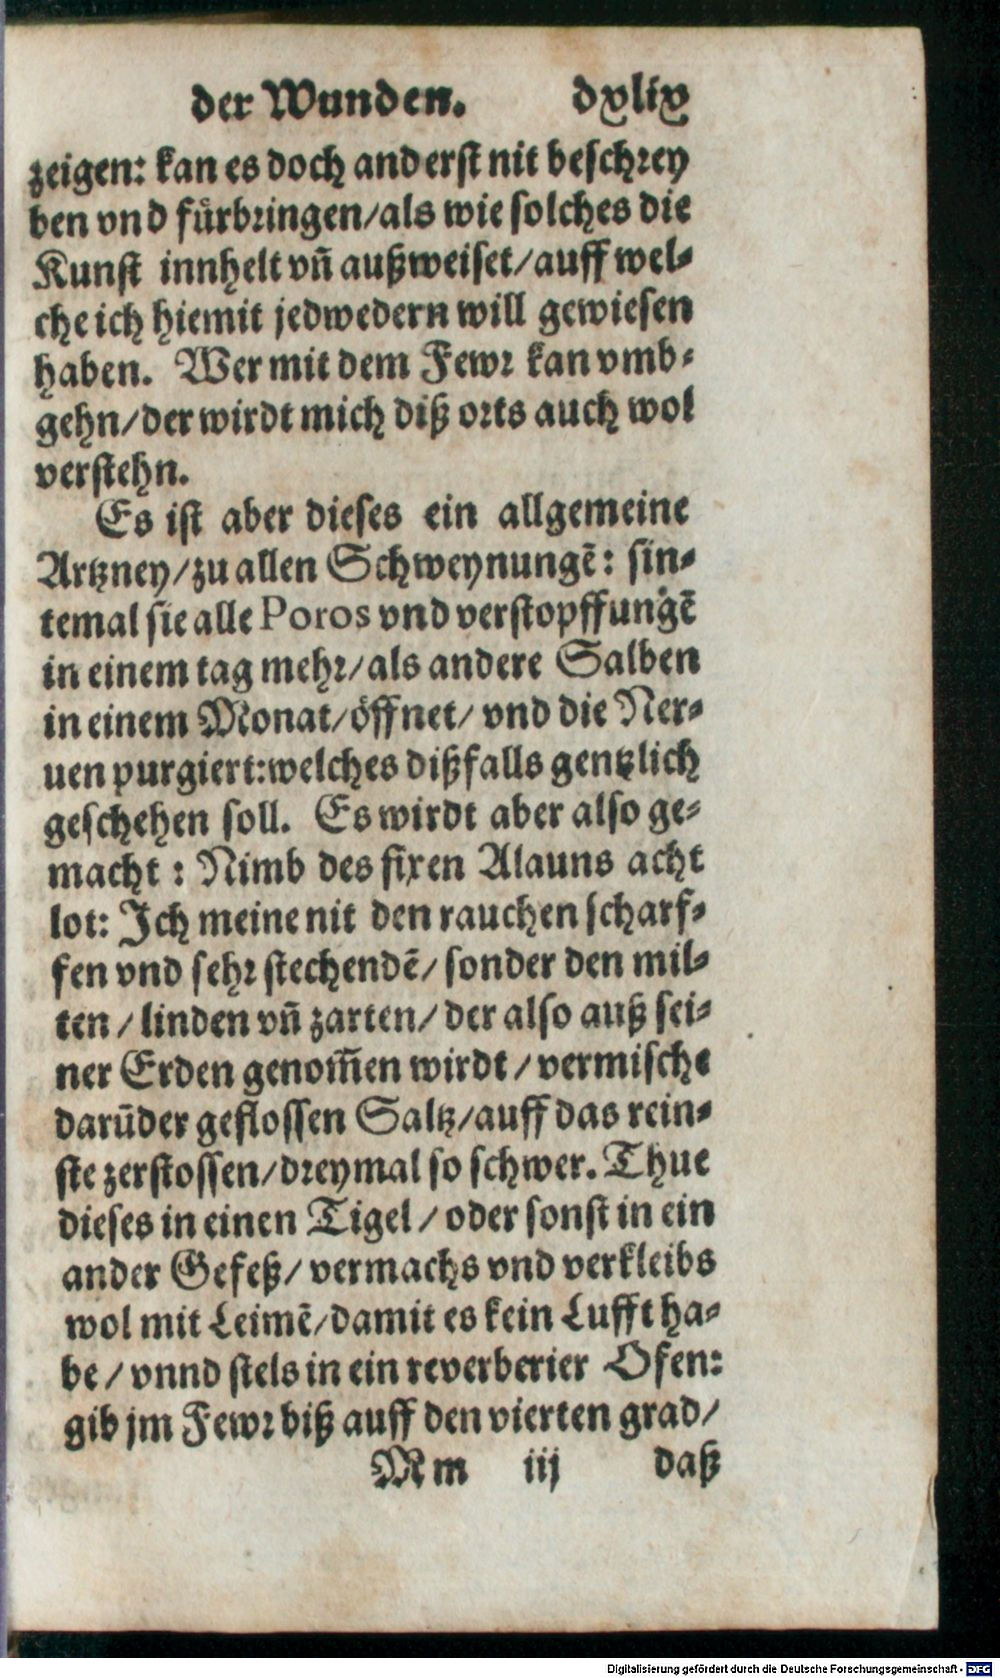 der Wunden. dxlix
zeigen: kan es doch anderst nit beschrey
ben vnd fürbringen/als wie solches die
Kunst innhelt vñ außweiset/auff wel-
che ich hiemit jedwedern will gewiesen
haben. Wer mit dem Fewr kan vmb-
gehn/der wirdt mich diß orts auch wol
verstehn.
Es ist aber dieses ein allgemeine
Artzney/zu allen Schweynungẽ: sin-
temal sie alle Poros vnd verstopffungẽ
in einem tag mehr/als andere Salben
in einem Monat/öffnet/ vnd die Ner-
uen purgiert:welches dißfalls gentzlich
geschehen soll. Es wirdt aber also ge-
macht : Nimb des fixen Alauns acht
lot: Ich meine nit den rauchen scharf-
fen vnd sehr stechendẽ/ sonder den mil-
ten / linden vñ zarten/ der also auß sei-
ner Erden genom̃en wirdt / vermische
darũder geflossen Saltz/auff das rein-
ste zerstossen/dreymal so schwer. Thue
dieses in einen Tigel / oder sonst in ein
ander Gefeß/ vermachs vnd verkleibs
wol mit Leimẽ/damit es kein Lufft ha-
be / vnnd stels in ein reverberier Ofen:
gib jm Fewr biß auff den vierten grad/
Mm iij daß
Digitalisierung gefördert durch die Deutsche Forschungsgemeinschaft - DFG